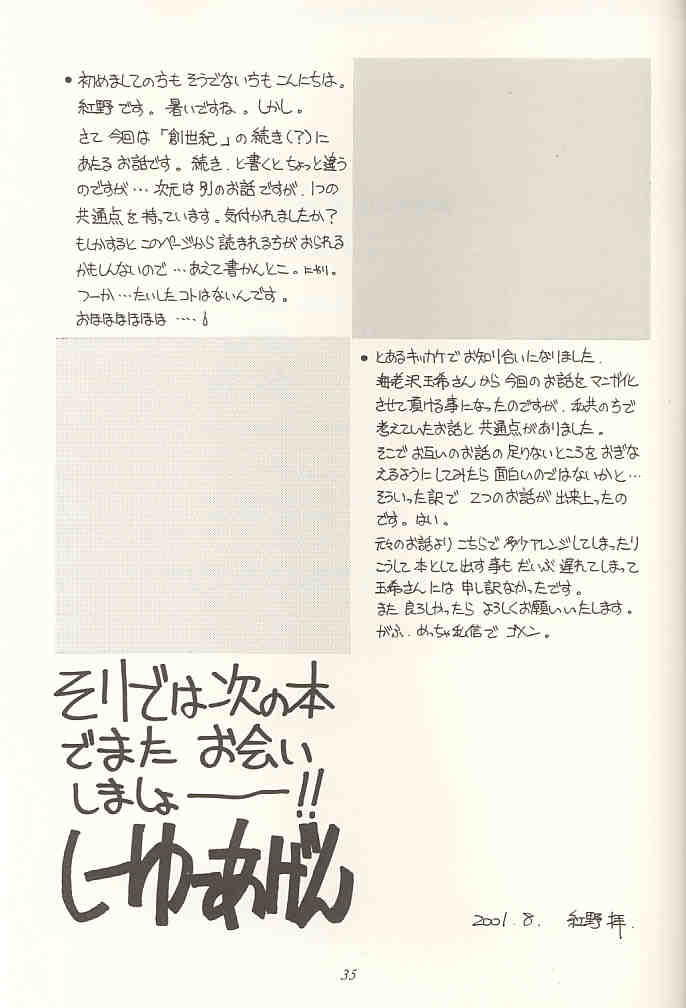 ●初めましての方も そうでない方も こんにちは。
紅野です。暑いですね。しかし。
さて 今回は 「創世紀」の続き(?)に
あたる お話です。続き、と書くと ちょっと違う
のですが… 次元は 別のお話ですが、1つの
共通点を 持っています。気付かれましたか?
もしかすると このページから 読まれる方が おられる
かもしんないので …あえて書かんとこ。にやり。
つーか…たいしたコトは ないんです。
おほほほほほほ ….!
●とあるキッカケで お知り合いになりました、
海老沢玉希さんから 今回のお話を マンガ化
させて頂ける事に なったのですが、私共の方で
考えていたお話と 共通点がありました。
そこで お互いのお話の 足りないところを おぎな
えるように してみたら 面白いのではないかと…
そういった訳で 2つのお話が 出来上ったの
です。はい。
元々のお話より こちらで 多々アレンジしてしまったり
こうして 本として出す事も だいぶ 遅れてしまって
玉希さんには 申し訳なかったです。
また 良ろしかったら よろしくお願いいたします。
がふ、めっちゃ私信で ゴメン。
そりでは次の本
でまた お会い
しましょ――!!
しーゆーあげん
2001.8. 紅野 拝.
35